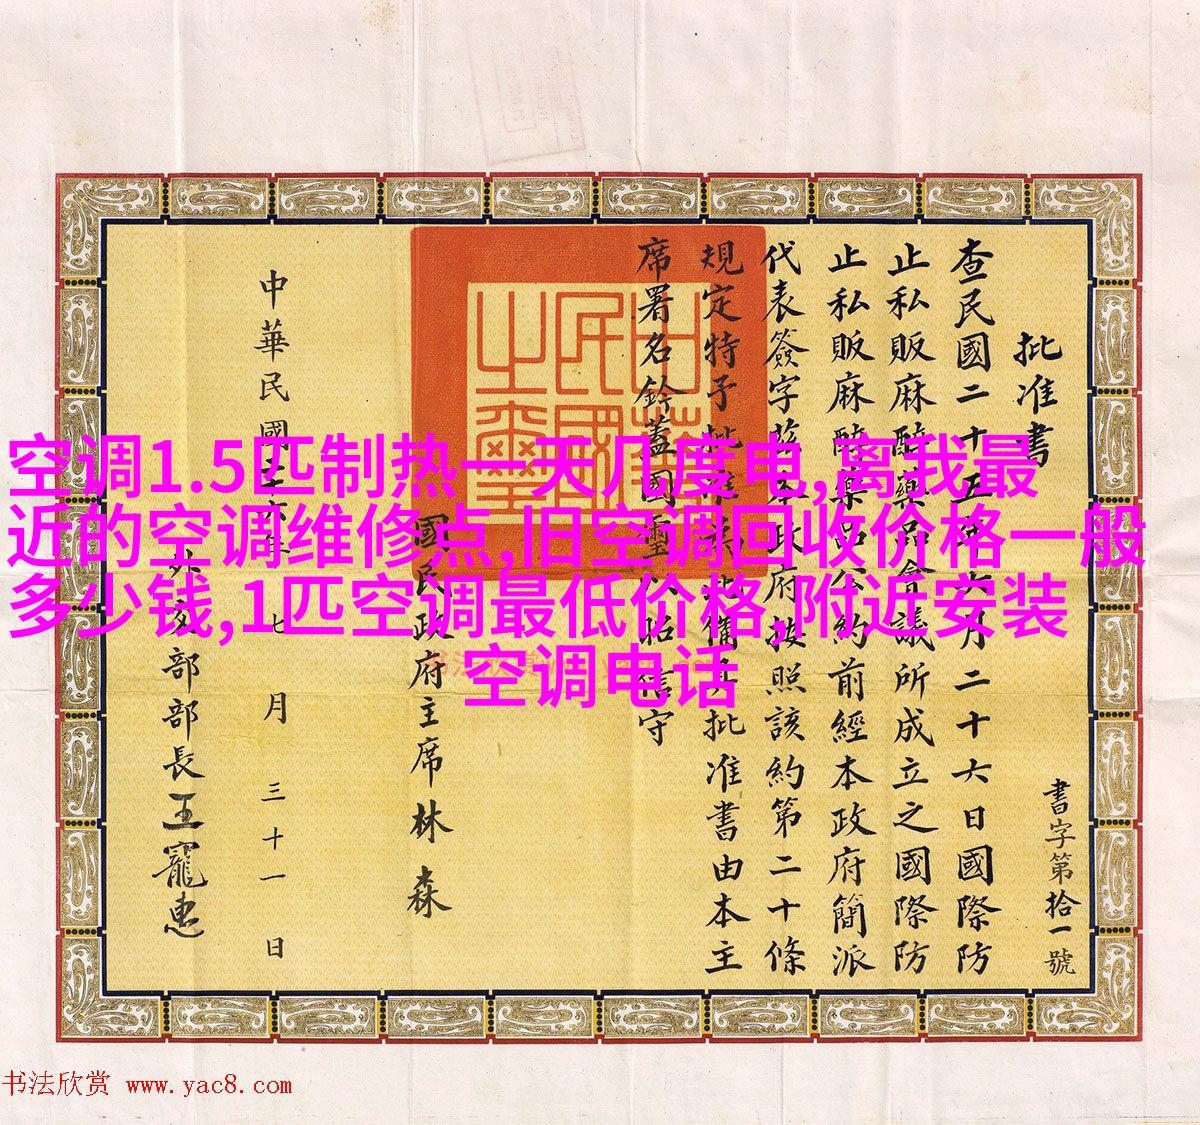 批准書
查民國二十五年六月二十六日國際防
止私販麻醉藥品會議所成立之國際防
止私販麻醉藥品公約前經本政府簡派
代表簽字茲本政府按照該約第二十條
規定特予批准
批准書由本主
席署名鈐蓋國璽以昭信守
國民政府主席林森
中華民國
七月三十一日
部部長王寵惠
書字第拾一號
空调1.5匹制热一天几度电,离我最
近的空调维修点,旧空调回收价格一般
多少钱,1匹空调最低价格,附近安装
空调电话
书法欣赏 www.yac8.com